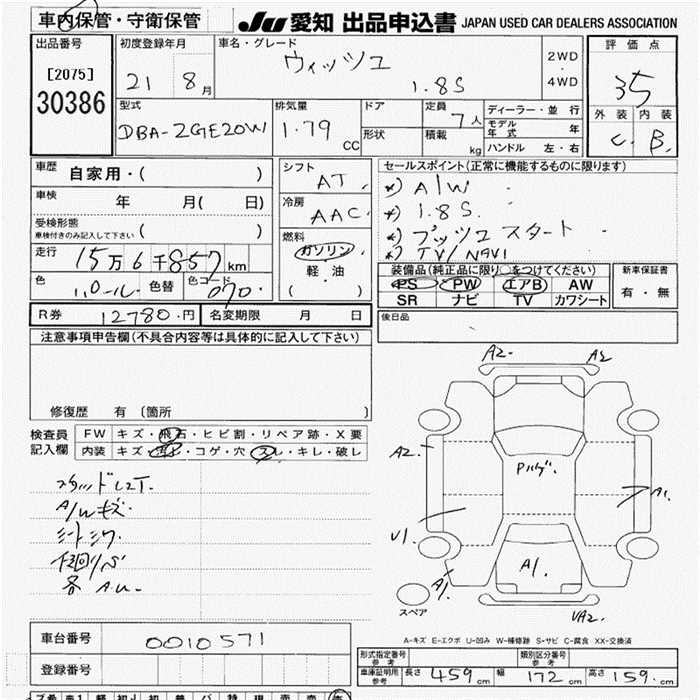 車内保管・守衛保管
JU 愛知 出品申込書 JAPAN USED CAR DEALERS ASSOCIATION
出品番号 初度登録年月 車名・グレード 評価点
[2075] 21 8月 ウィッツュ 1.8S 2WD・4WD 35
30386
型式 排気量 ドア 定員 ディーラー・並行 外装 内装
DBA-ZGE20W 1.79 CC 形状 7人 積載 kg モデル年式 年 C. B.
ハンドル 左・右
車歴 自家用・( ) シフト AT. セールスポイント(正常に機能するものに限ります)
車検 年 月( 日) 冷房 AAC. *) A/W
受検形態 ( ) *) 1.8S.
車検付きのみ記入して下さい 燃料 *) プッツュスタート
走行 15万6千857km ガソリン・軽油・( ) *) TV/NAVI
色 パール 色替 色コード 070. 装備品(純正品に限り○をつけてください) 新車保証書
PS PW エアB AW 有・無
SR ナビ TV カワシート
R券 12780.円 名変期限 月 日 後日品
注意事項申告欄(不具合内容等は具体的に記入して下さい)
修復歴 有 (箇所 )
検査員記入欄 FW キズ・飛石・ヒビ割・リペア跡・X要
内装 キズ・汚レ・コゲ・穴・スレ・キレ・破レ
A/Wキズ.
A2 A2
A2
Pハゲ.
A1.
U1
A1.
A1.
UA2
スペア
A-キズ E-エクボ U-凹み W-補修跡 S-サビ C-腐食 XX-交換済
車台番号 0010571
登録番号
形式指定番号 参考 類別区分番号 参考
車庫証明用 参考 長さ 459 cm 幅 172 cm 高さ 159. cm